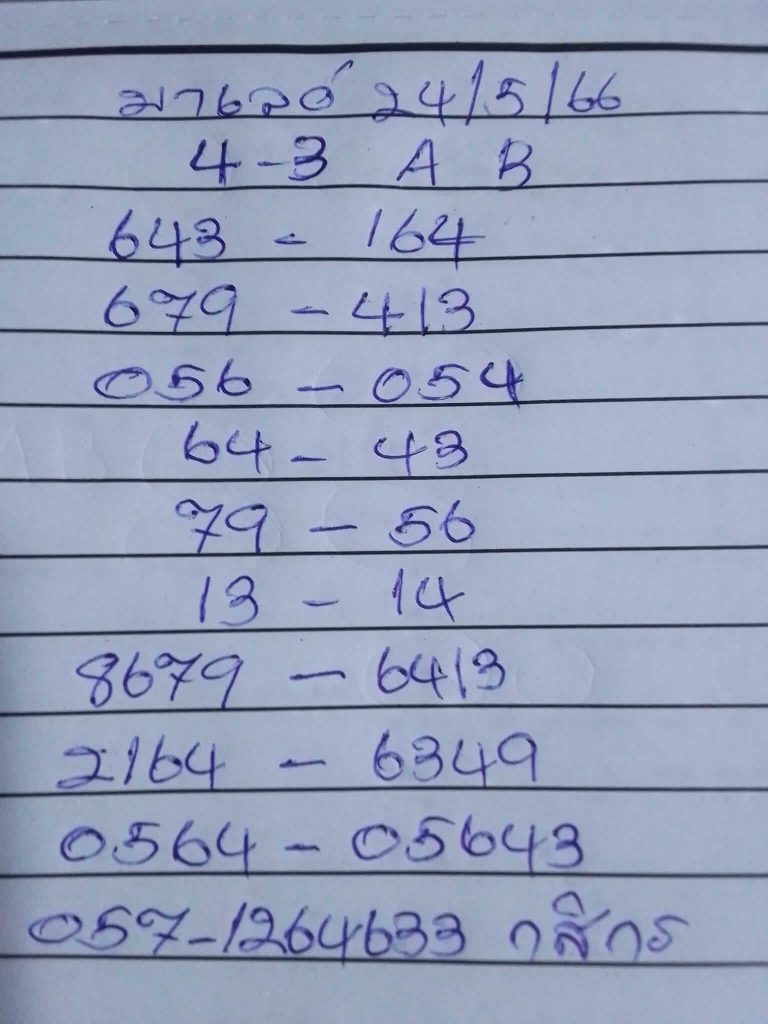 มาเลย์ 24/5/66
4-3 A B
643 - 164
679 - 413
056 - 054
64 - 43
79 - 56
13 - 14
8679 - 6413
2164 - 6349
0564 - 05643
057-1264633 กสิกร